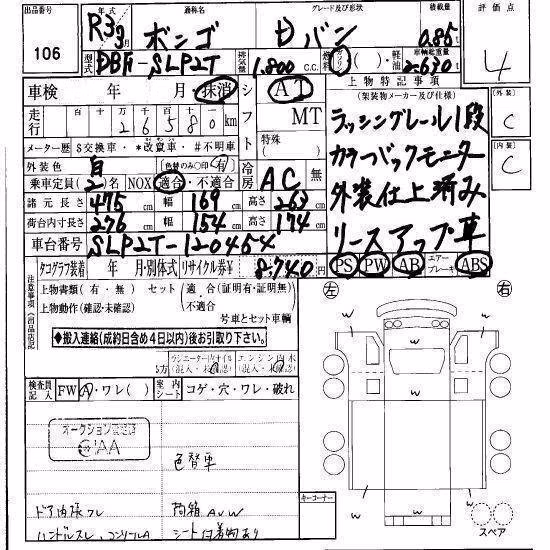 出品番号 年式 通称名 グレード及び形状 積載量 評価点
106 R3年3月 ボンゴ D バン 0.85t 4
型式 DBF-SLP2T 排気量 1.800C.C. 燃料 ガソリン・軽油 車輌総重量 2.630t
車検 年 月・抹消 シフト AT 上物特記事項
(架装物メーカー及び仕様) [外装] C
走行 百 十 万 千 百 十 km
26580 MT ラッシングレール1段
メーター歴 $交換車・*改竄車・#不明車 特殊( ) カラーバックモニター [内装] C
外装色 白 (色替のみ○印 有) 冷房 AC 無 外装仕上済み
乗車定員 (2)名 NOX 適合・不適合
諸元長さ 475cm 幅 169cm 高さ 263cm リースアップ車
荷台内寸長さ 276cm 幅 154cm 高さ 174cm
車台番号 SLP2T-120454 PS PW AB エアーブレーキ ABS
タコグラフ装着 年 月・別体式 リサイクル券¥ 8,740円 左 右
注意事項(出品店記)
上物書類(有・無) セット(適合(証明有・証明無)
上物動作(確認・未確認) 不適合
号車とセット車輌
◆搬入連絡(成約日含め4日以内)後お引取り下さい。
ラジエーター内オイル エンジン内水
(混入・未確認) (混入・未確認)
検査員記入 FW A・ワレ( ) 室内シート コゲ・穴・ワレ・破れ
オークション
色替車
キーコーナー
ドア内張ワレ 荷箱AUW
ハンドルスレ、コンソールA シート付着物あり
w w w w w w
スペア